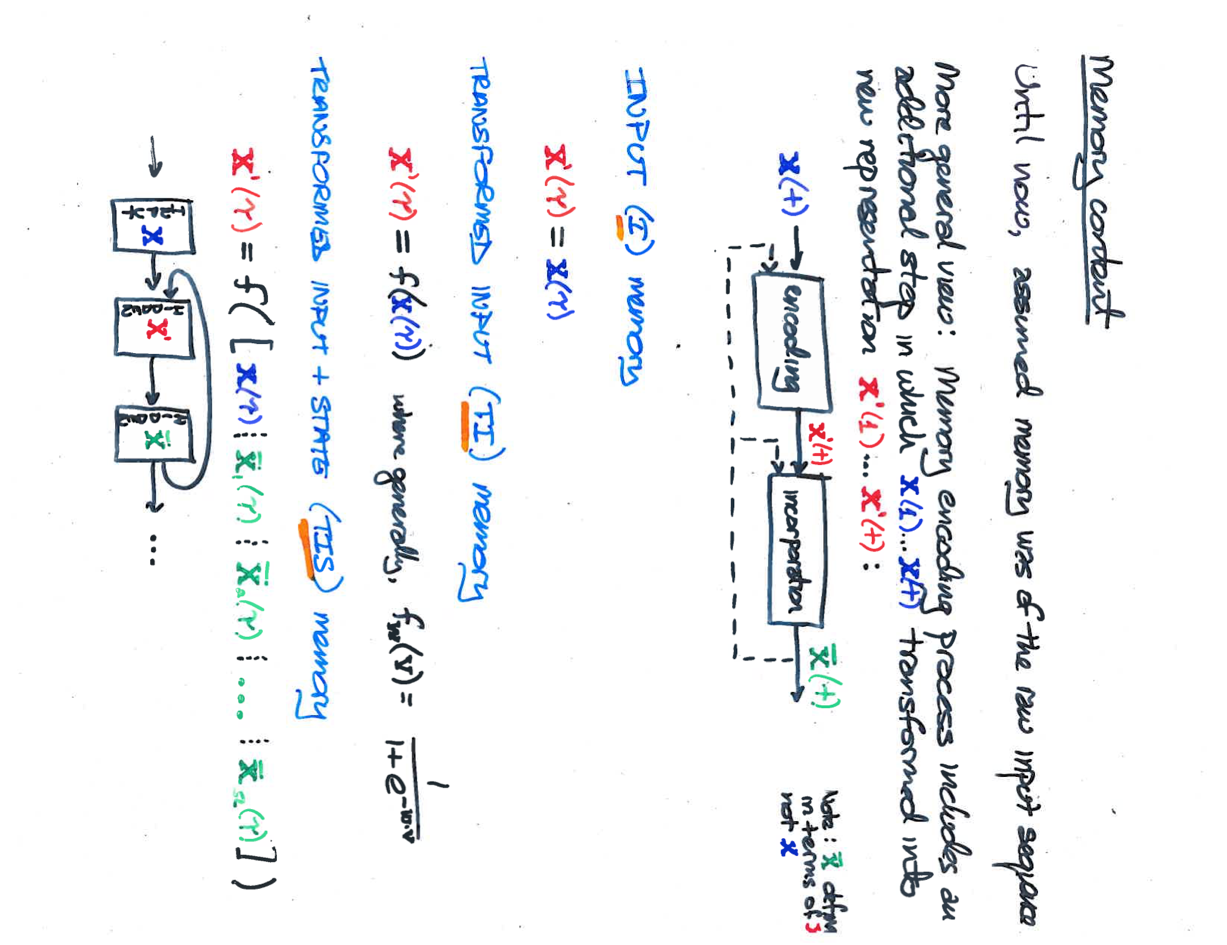 Memory content
Until now, assumed memory was of the raw input sequence
More general view: Memory encoding process includes an
additional step in which x(1)...x(t) transformed into
new representation x'(1)...x'(t):
x(t) → encoding x'(t) → incorporation x̄(t)
Note: x̄ defin
in terms of
not x
INPUT (I) memory
x'(τ) = x(τ)
TRANSFORMED INPUT (TI) memory
x'(τ) = f(x(τ)) where generally, f_w(v) = 1 / (1 + e^(-w.v))
TRANSFORMED INPUT + STATE (TIS) memory
x'(τ) = f([x(τ) ⋮ x̄₁(τ) ⋮ x̄₂(τ) ⋮ ... ⋮ x̄_Ω(τ)])
→ x → x' → x̄ → ...